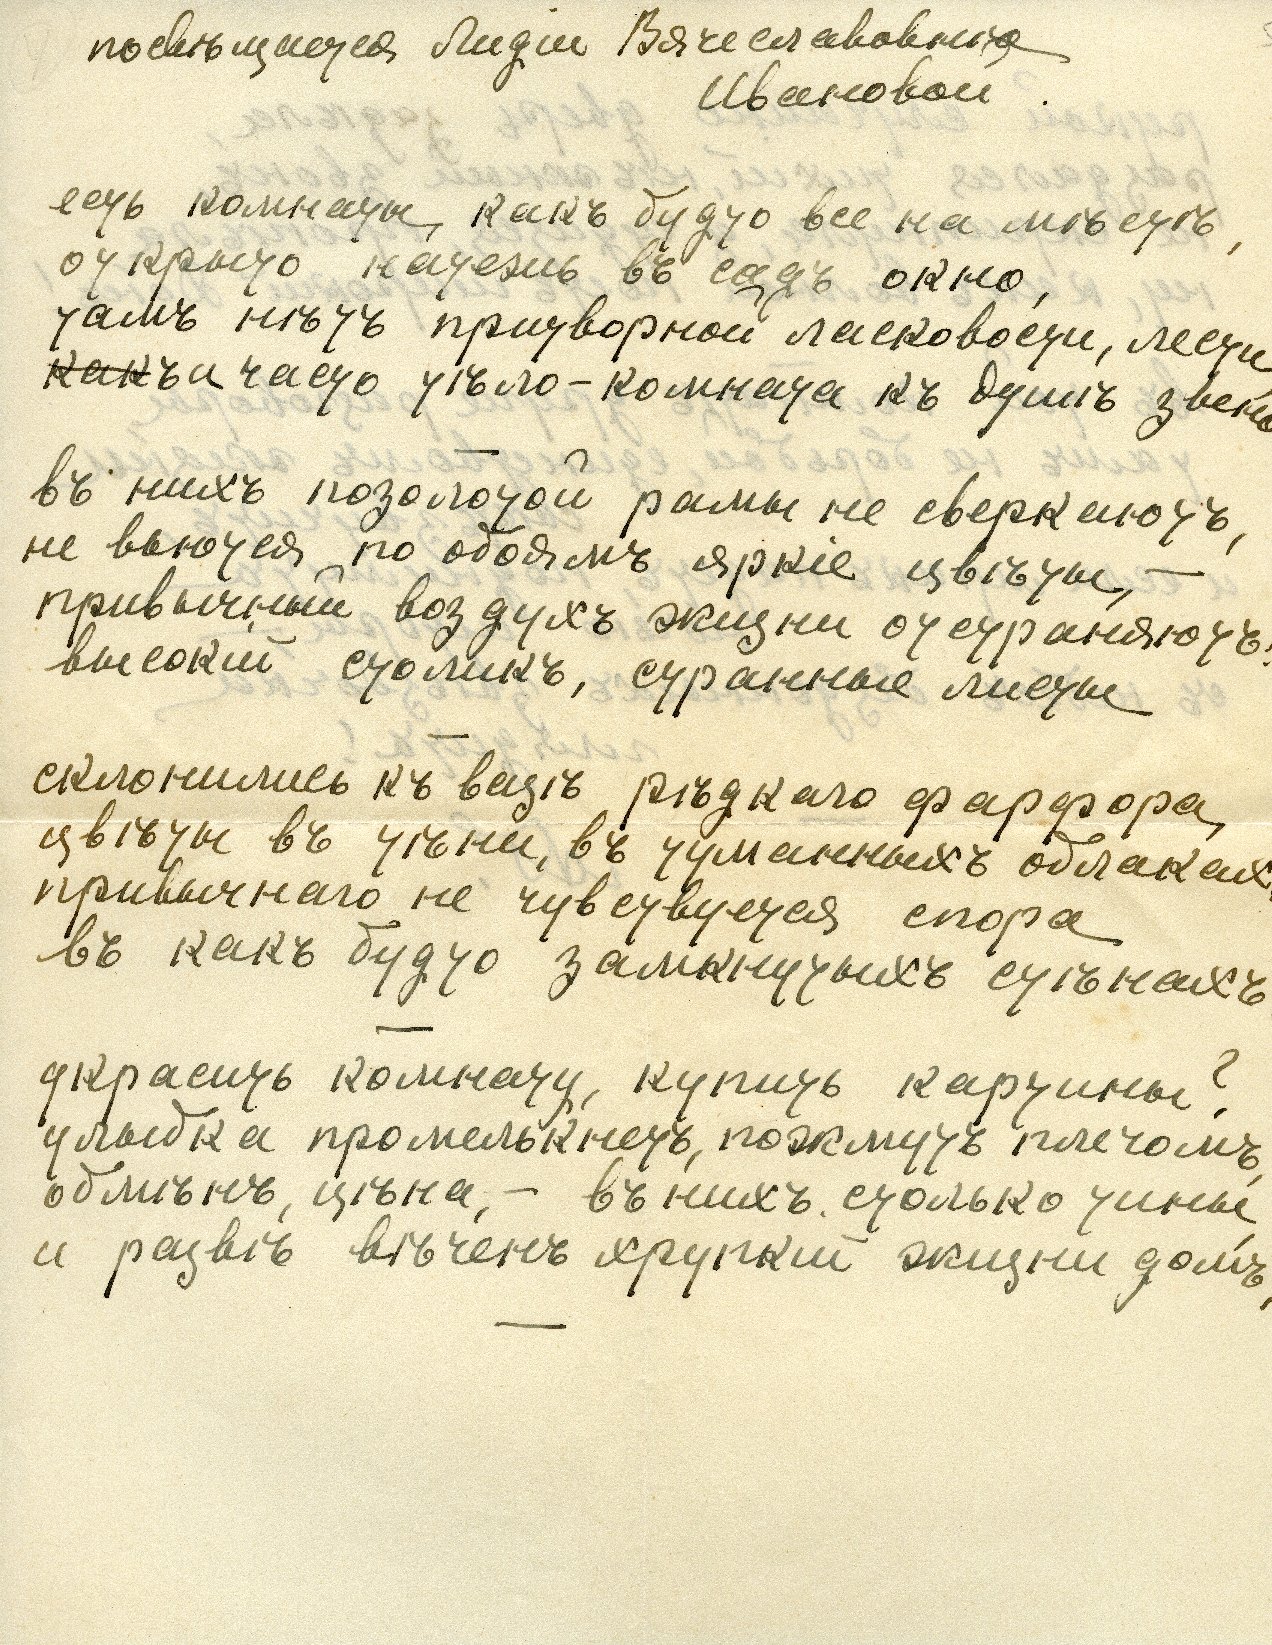 посвящается Лидіи Вячеславовнѣ
Ивановой.
есть комнаты, какъ будто все на мѣстѣ,
открыто настежь въ садъ окно,
тамъ нѣтъ притворной ласковости, лести
какъ и часто тѣло-комната къ душѣ звено
—
въ нихъ позолотой рамы не сверкаютъ,
не вьются по обоямъ яркіе цвѣты, —
привычный воздухъ жизни отстраняютъ:
высокій столикъ, странные листы
—
склонились къ вазѣ рѣдкаго фарфора,
цвѣты въ тѣни, въ туманныхъ облакахъ,
привычнаго не чувствуется спора
въ какъ будто замкнутыхъ стѣнахъ
—
украсить комнату, купить картины?
улыбка промелькнетъ, пожмутъ плечомъ,
обмѣнъ, цѣна, — въ нихъ столько тины
и развѣ вѣченъ хрупкій жизни домъ,
—